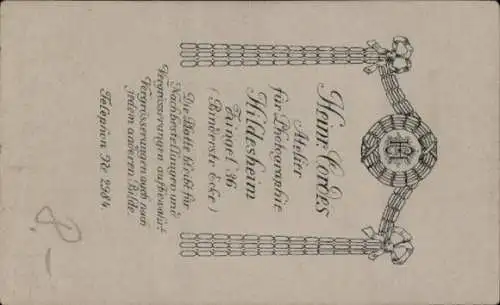 Heinr. Cordes
Atelier
für Photographie
Hildesheim
Zingel 36
(Binderstr. Ecke)
Die Platte bleibt für
Nachbestellungen und
Vergrösserungen aufbewahrt
Vergrösserungen auch nach
jedem anderen Bilde.
Telephon No 2984.
8.-